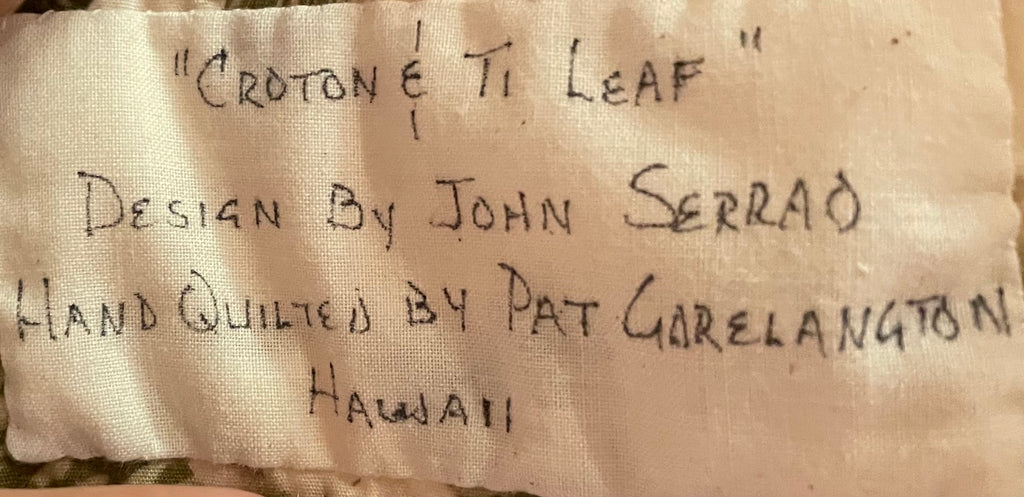 "CROTON & TI LEAF"
DESIGN BY JOHN SERRAO
HAND QUILTED BY PAT GORELANGTON
HAWAII